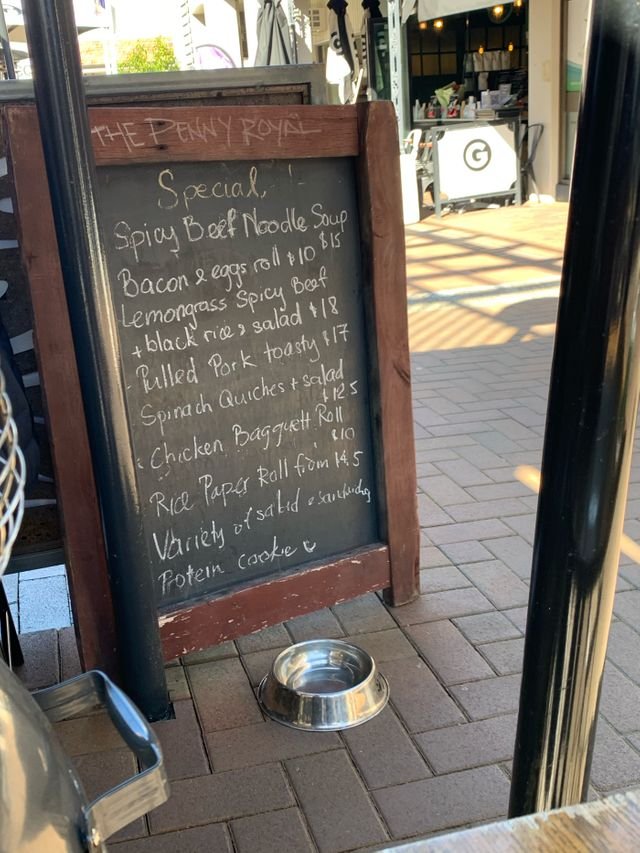 THE PENNY ROYAL
Special
Spicy Beef Noodle Soup
$15
Bacon & eggs roll $10
Lemongrass Spicy Beef
+ black rice & salad $18
Pulled Pork toasty $17
Spinach Quiches + salad
$12.5
Chicken Bagguett Roll
$10
Rice Paper Roll from 14.5
Variety of salad & sandwidg
Protein cookie
G